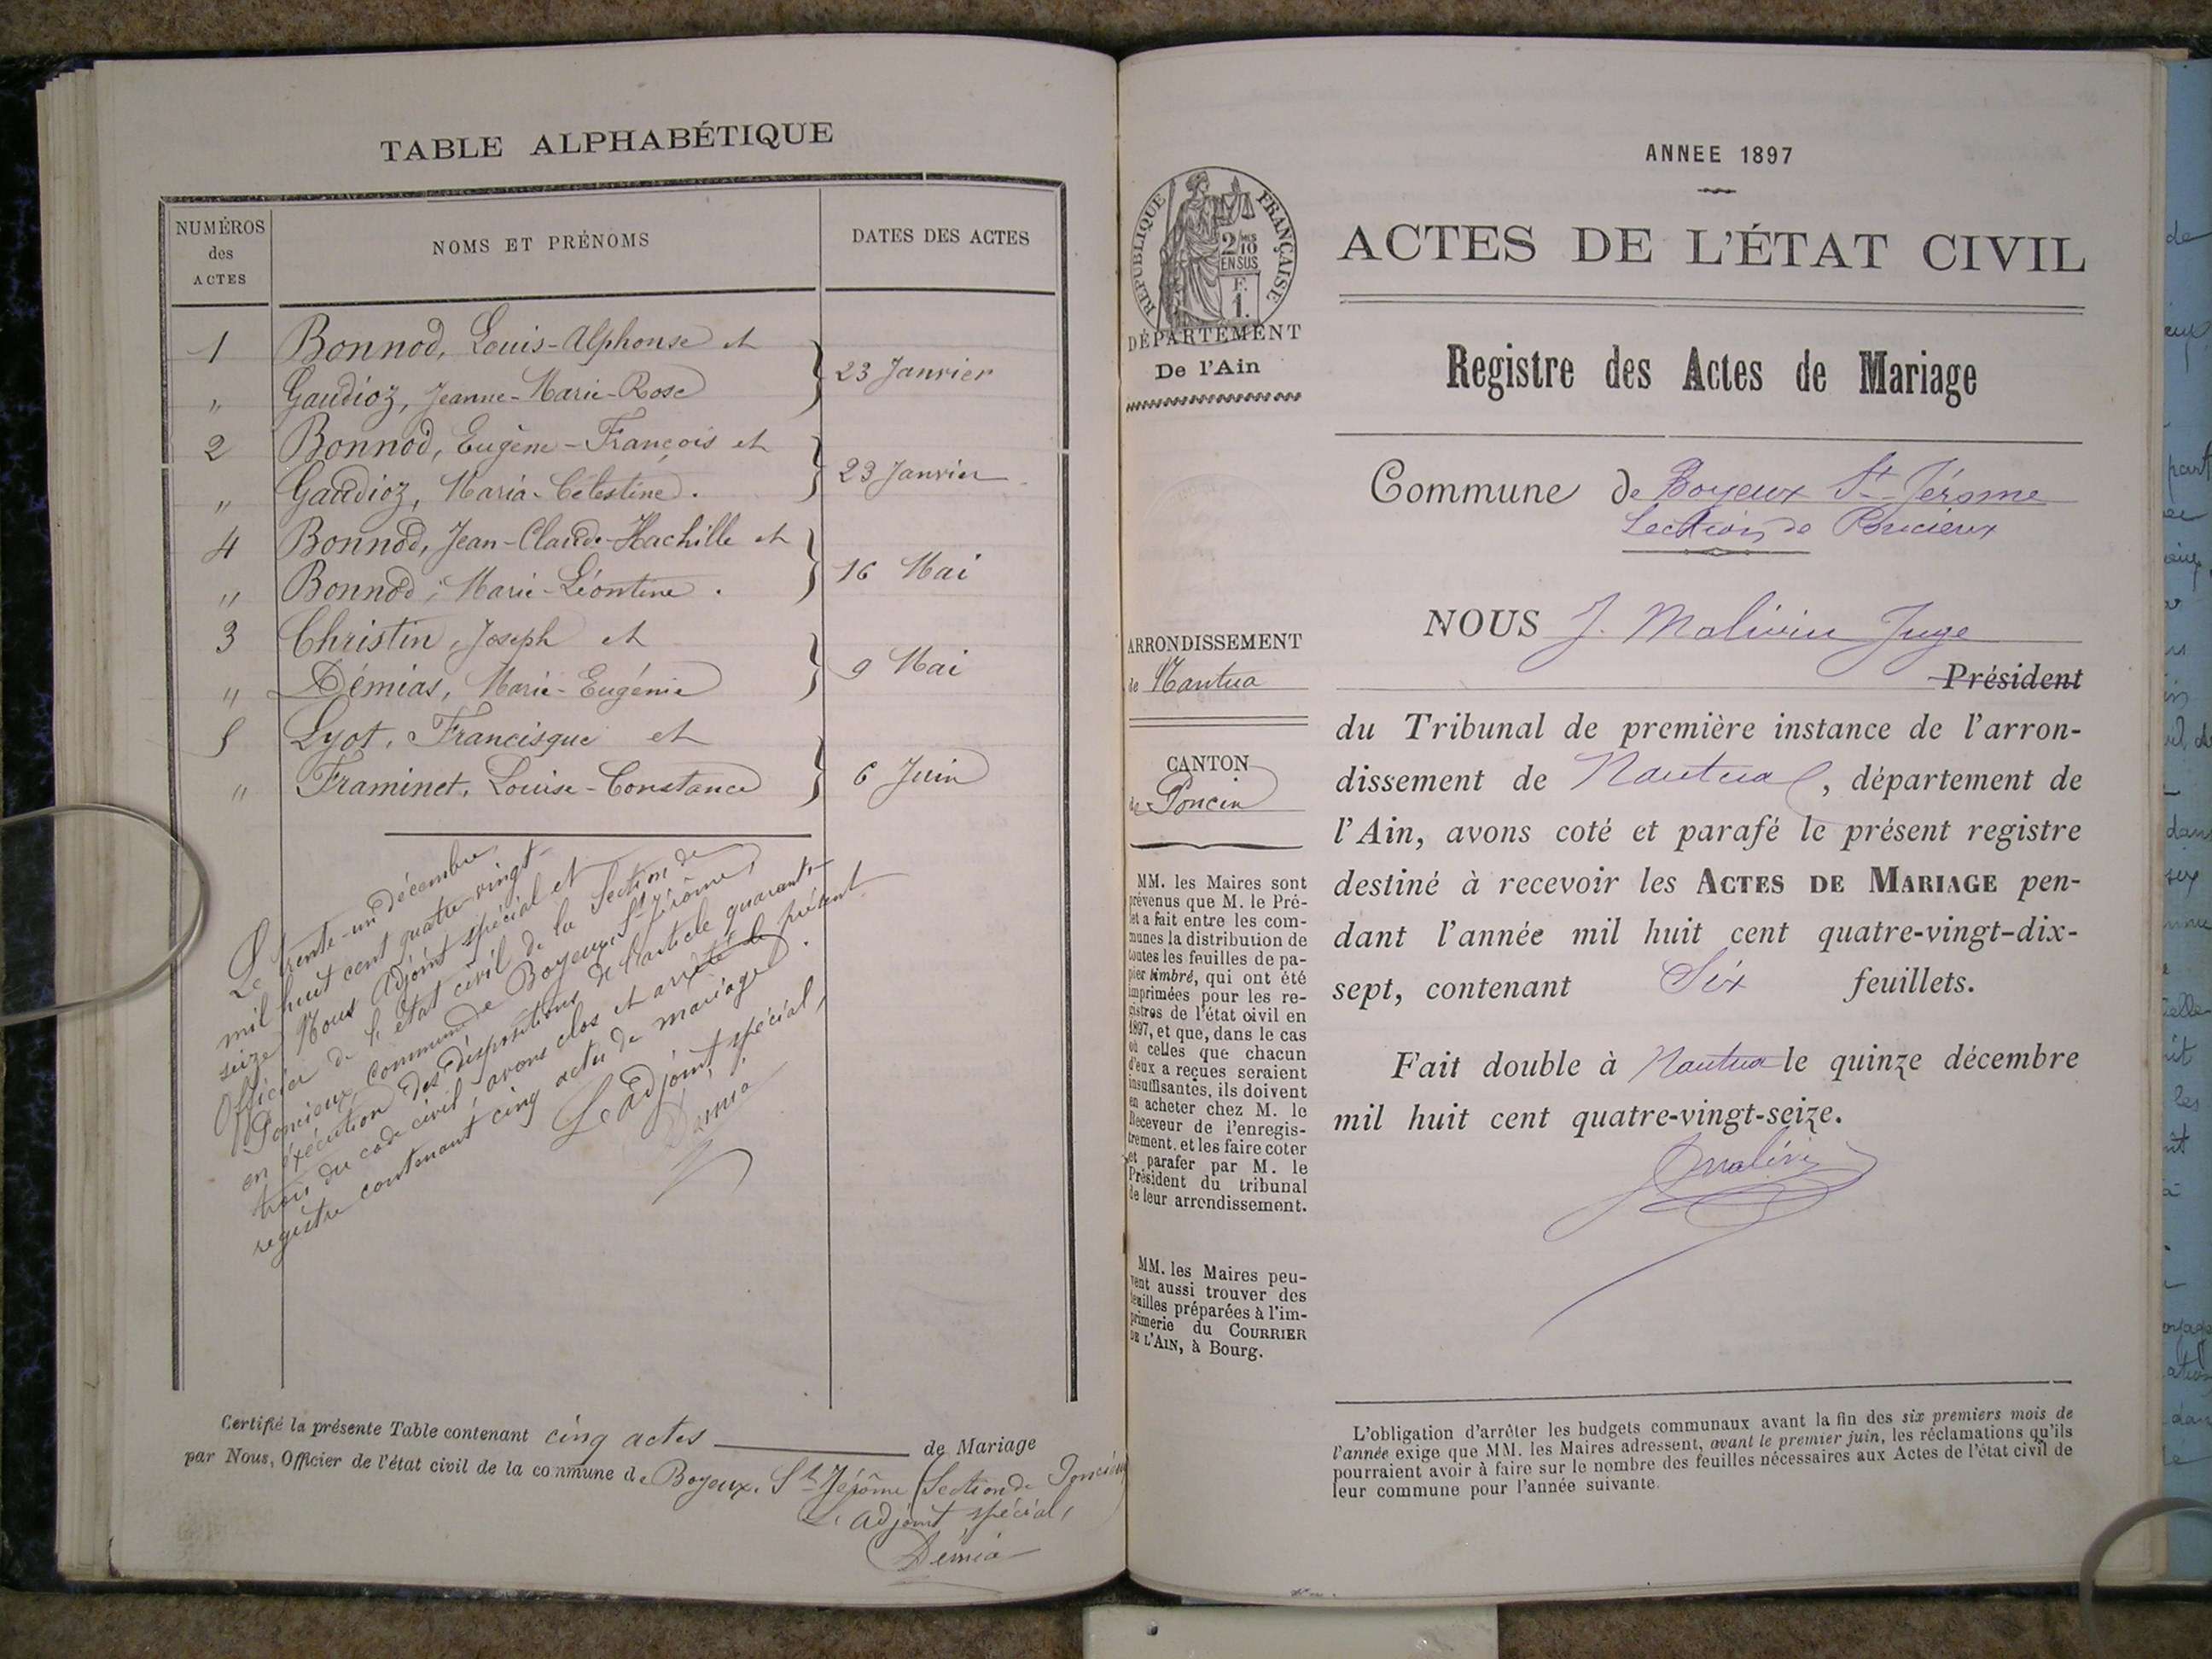 TABLE ALPHABÉTIQUE
NUMÉROS
des
ACTES
NOMS ET PRÉNOMS
DATES DES ACTES
1 Bonnod, Louis-Alphonse et
" Gaudioz, Jeanne-Marie-Rose } 23 Janvier
2 Bonnod, Eugène-François et
" Gaudioz, Maria-Célestine. } 23 Janvier
4 Bonnod, Jean-Claude-Hachille et
" Bonnod, Marie-Léontine. } 16 Mai
3 Christin, Joseph et
" Démias, Marie-Eugénie } 9 Mai
5 Lyot, Francisque et
" Framinet, Louise-Constance } 6 Juin
Le trente-un décembre
mil huit cent quatre-vingt-
seize Nous Adjoint spécial et
Officier de l'état civil de la Section de
Poncieux, Commune de Boyeux-St Jérôme,
en éxécution des dispositions de l'article quarante-
trois du code civil, avons clos et arrêté le présent
registre contenant cinq actes de mariage.
Le adjoint spécial,
Démia
Certifié la présente Table contenant cinq actes de Mariage
par Nous, Officier de l'état civil de la commune de Boyeux. St Jérôme (Section de Poncieux
L. adjoint spécial,
Démia
RÉPUBLIQUE FRANÇAISE
2/10
EN SUS
F.
1.
DÉPARTEMENT
De l'Ain
ARRONDISSEMENT
de Nantua
CANTON
de Poncin
MM. les Maires sont
prévenus que M. le Pré-
fet a fait entre les com-
munes la distribution de
toutes les feuilles de pa-
pier timbré, qui ont été
imprimées pour les re-
gistres de l'état civil en
1897, et que, dans le cas
où celles que chacun
d'eux a reçues seraient
insuffisantes, ils doivent
en acheter chez M. le
Receveur de l'enregis-
trement, et les faire coter
et parafer par M. le
Président du tribunal
de leur arrondissement.
MM. les Maires peu-
vent aussi trouver des
feuilles préparées à l'im-
primerie du COURRIER
DE L'AIN, à Bourg.
ANNEE 1897
ACTES DE L'ÉTAT CIVIL
Registre des Actes de Mariage
Commune de Boyeux St-Jérome
Section de Poncieux
NOUS J. Malivin Juge
Président
du Tribunal de première instance de l'arron-
dissement de Nantua, département de
l'Ain, avons coté et parafé le présent registre
destiné à recevoir les ACTES DE MARIAGE pen-
dant l'année mil huit cent quatre-vingt-dix-
sept, contenant Six feuillets.
Fait double à Nantua le quinze décembre
mil huit cent quatre-vingt-seize.
L'obligation d'arrêter les budgets communaux avant la fin des six premiers mois de
l'année exige que MM. les Maires adressent, avant le premier juin, les réclamations qu'ils
pourraient avoir à faire sur le nombre des feuilles nécessaires aux Actes de l'état civil de
leur commune pour l'année suivante.